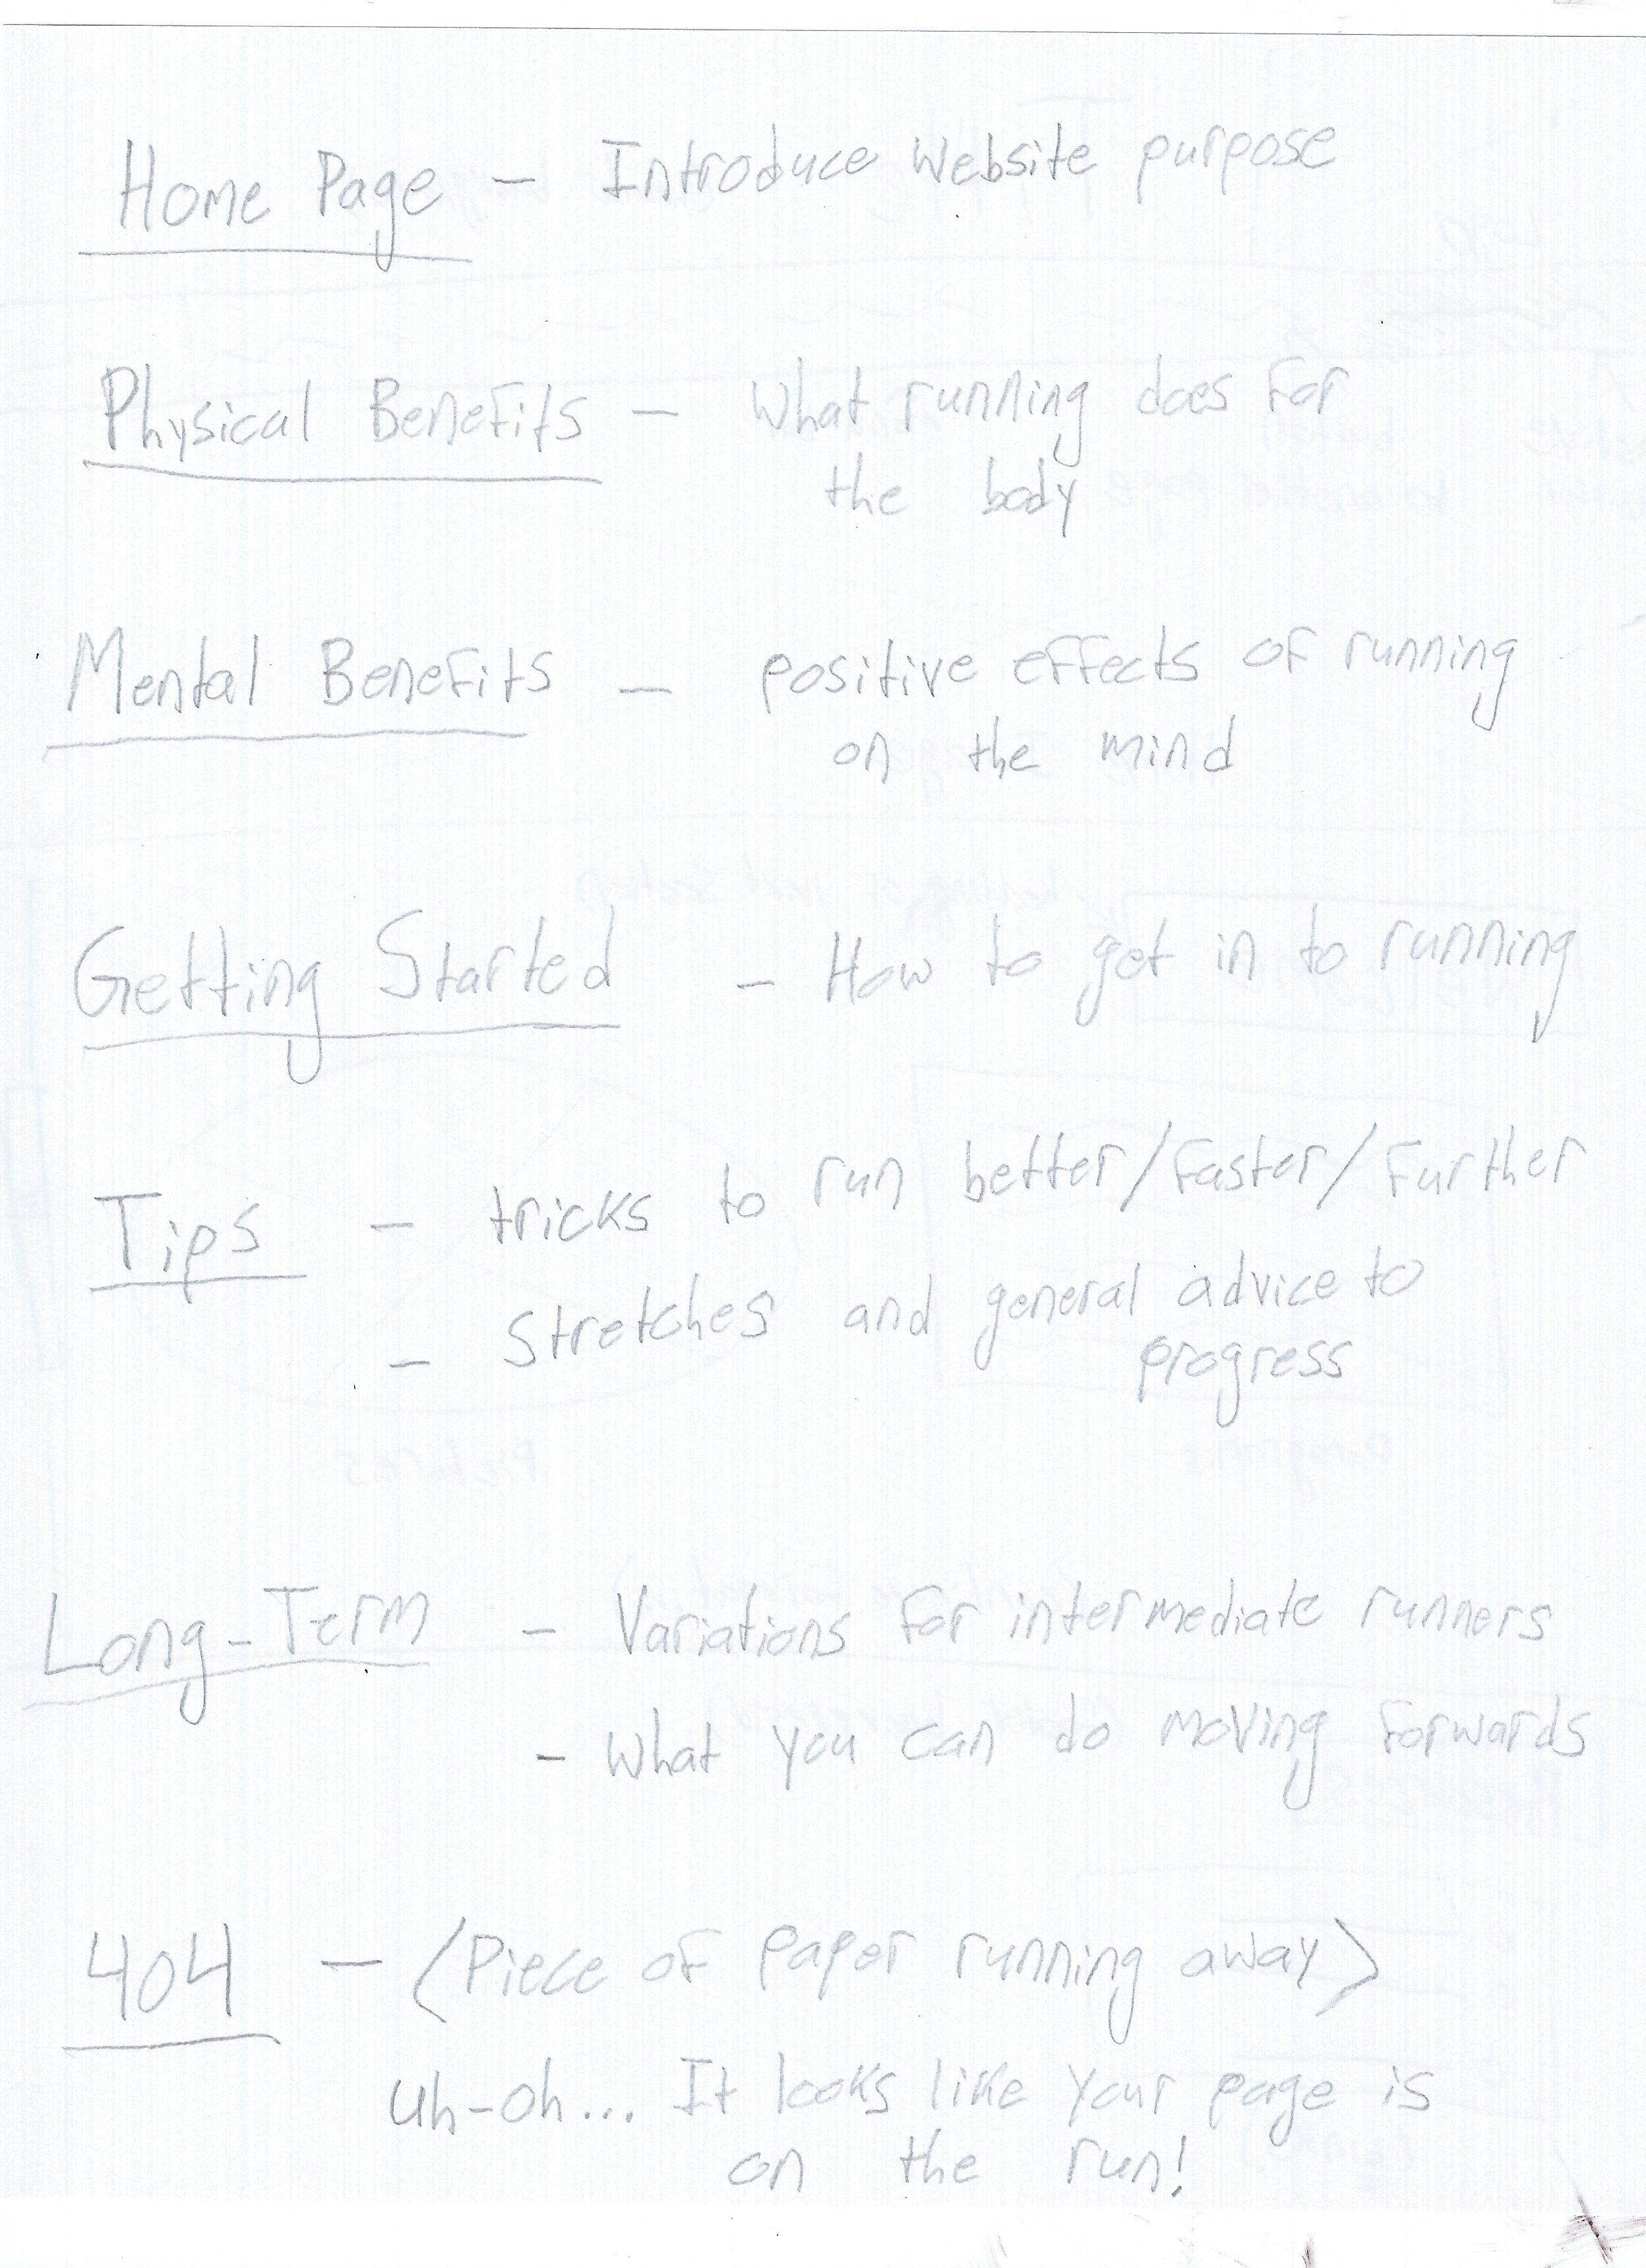 Home Page - Introduce website purpose
Physical Benefits - What running does for
the body
Mental Benefits - positive effects of running
on the mind
Getting Started - How to get in to running
Tips - tricks to run better/faster/further
- Stretches and general advice to
progress
Long-Term - Variations for intermediate runners
- What you can do moving forwards
404 - (Piece of paper running away)
Uh-oh... It looks like your page is
on the run!